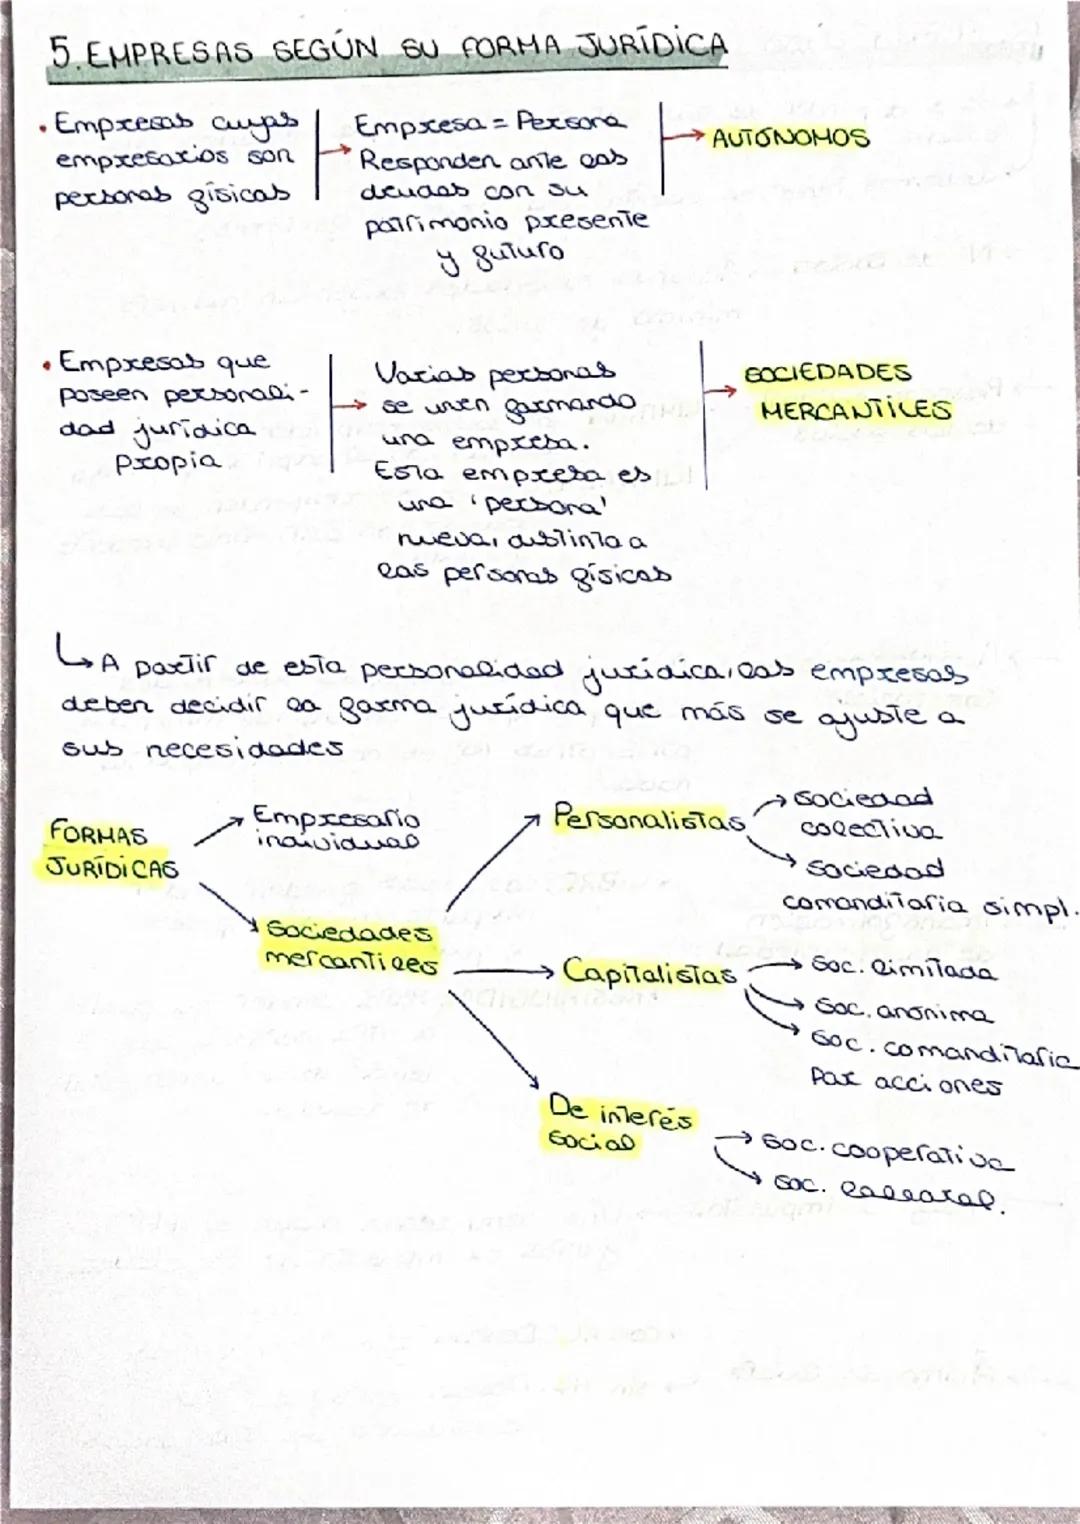 5. EMPRESAS SEGÚN SU FORMA JURÍDICA
· Empresas cuyas
empresarios son
personas físicas
Empresa = Persona
Responden ante las
deudas con su
patrimonio presente
y futuro
AUTÓNOMOS
· Empresas que
poseen personali-
dad jurídica
propia
Varias personas
se unen formando
una empresa.
Esta empresa es
una 'persona'
nueva, distinta a
las personas físicas
SOCIEDADES
MERCANTILES
↳ A partir de esta personalidad jurídica, las empresas
deben decidir la forma jurídica que más se ajuste a
sus necesidades
FORMAS
JURÍDICAS
Empresario
individual
Sociedades
mercantiles
Personalistas
Sociedad
colectiva
Sociedad
comanditaria simpl.
Capitalistas
Soc. limitada
Soc. anónima
Soc. comanditaria
por acciones
De interés
social
Soc. cooperativa
Soc. laboral.